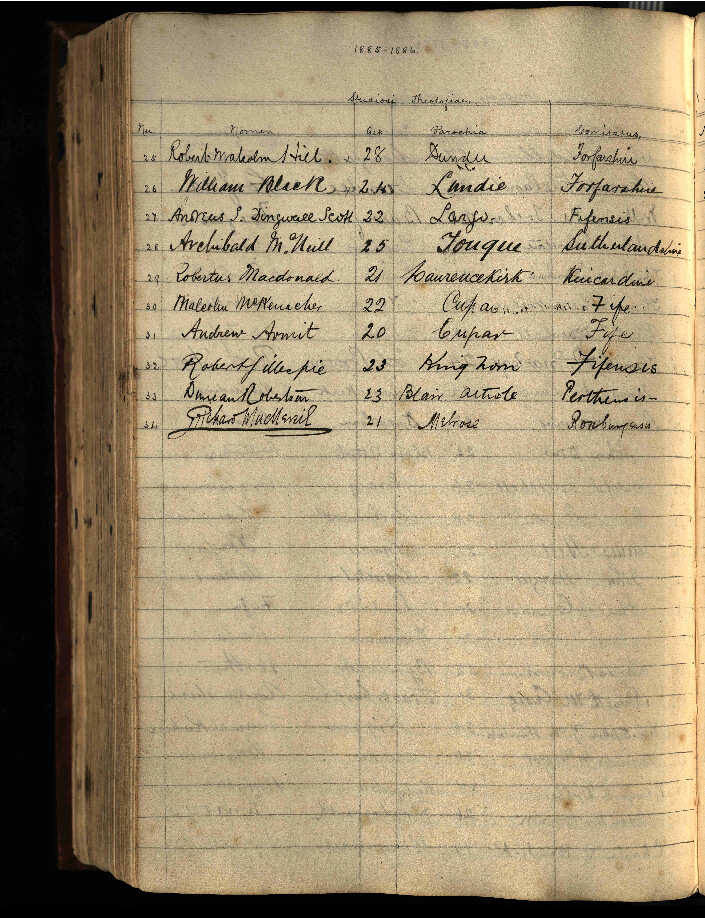 1885-1886.
Studiosi Theologiae.
No. Nomen. Aet. Parochia Comitatus.
25 Robert Malcolm Hill. 28 Dundee Forfarshire
26 William Black 24 Lundie Forfarshire
27 Andreas S. Dingwall Scott 22 Largo. Fifensis
28 Archibald McNull 25 Tongue Sutherlandshire
29 Robertus Macdonald. 21 Laurencekirk Kincardine
30 Malcolm 22 Cupar Fife
31 Andrew Armit 20 Cupar Fife
32 Robert Gillespie 23 Kinghorn Fifensis
33 Duncan Robertson 23 Blair Athole Perthensis
34 Richard 21 Melrose Roxburgensis